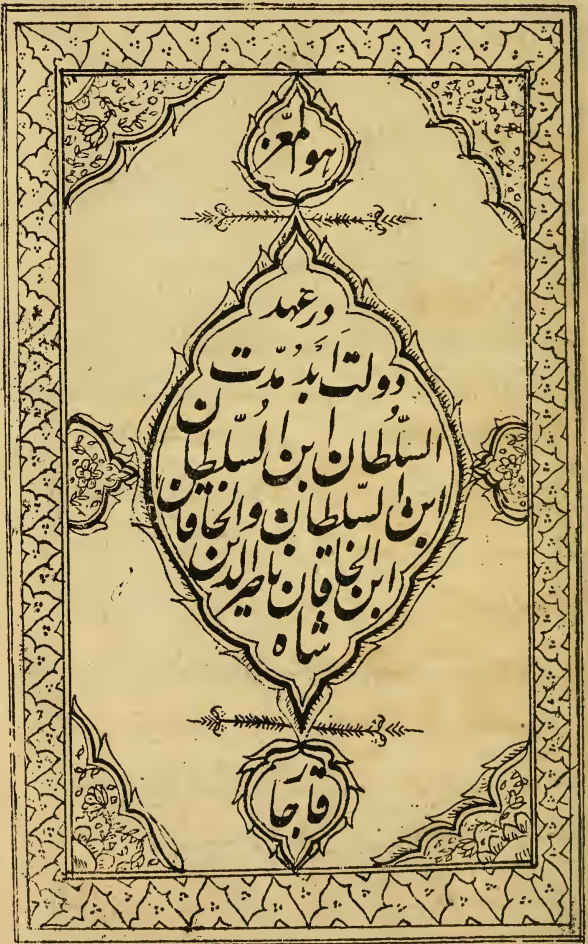 هو المعّز
در عهد
دولت اَبَد مُدّت
السّلطان ابن السّلطان
ابن السّلطان والخاقان
ابن الخاقان ناصر الدین
شاه
قاجار